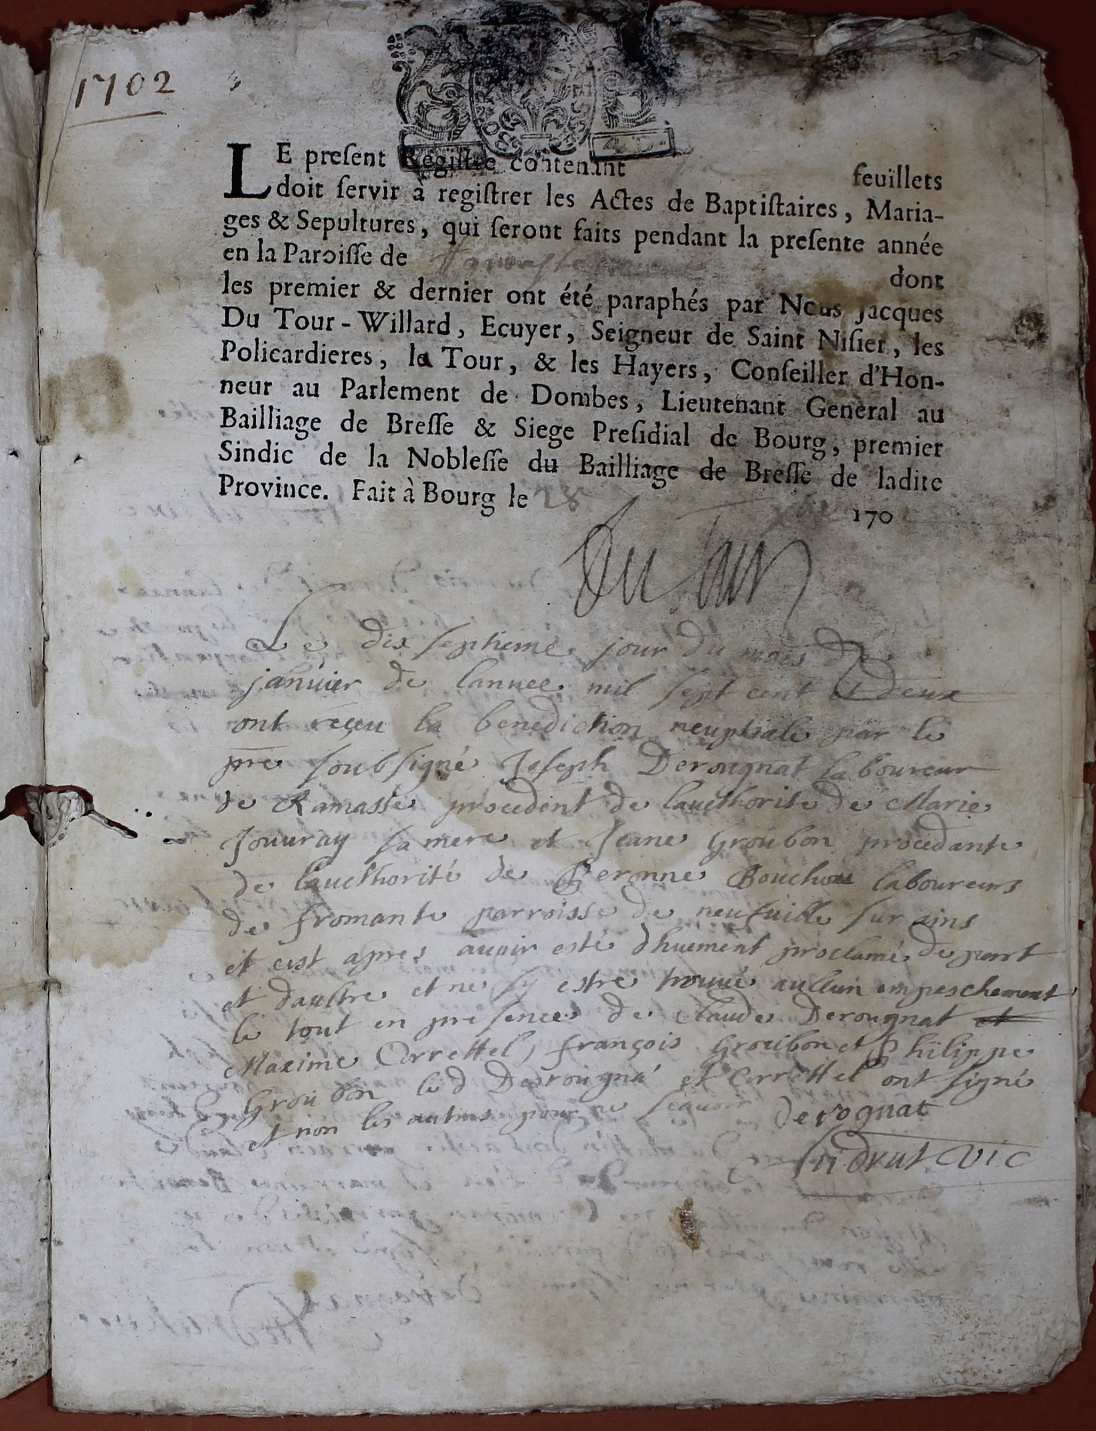 1702
LE preſent Regiſtre contenant feuillets
doit ſervir à regiſtrer les Actes de Baptiſtaires, Maria-
ges & Sepultures, qui ſeront faits pendant la preſente année
en la Paroiſſe de dont
les premier & dernier ont été paraphés par Nous Jacques
Du Tour-Willard, Ecuyer, Seigneur de Saint Niſier, les
Policardieres, la Tour, & les Hayers, Conſeiller d'Hon-
neur au Parlement de Dombes, Lieutenant General au
Bailliage de Breſſe & Siege Preſidial de Bourg, premier
Sindic de la Nobleſſe du Bailliage de Breſſe de ladite
Province. Fait à Bourg le 28 170
Du Tour
Le dix septieme jour du mois de
januier de lannee mil sept cent et deux
ont reçeu la benediction neuptiale par le
pre soubsigné Joseph Derougnat laboureur
de Ramasse procedent de laucthorite de Marie
Jouuray sa mere et Jeane Groubon procedante
de laucthorité de Peronne Bouchou laboureurs
de fromante parroisse de neufuille sur ains
et cest apres auoir esté dhuement proclamé de part
et daultre et ne sy estre trouué aullun empeschement
le tout en presence de Claude Derougnat et
Maxime Correttel, françois Groubon et Philippe
Groubon led Derougná et Correttel ont signé
et non les autres pour ne sçauoir derognat
Indrut vic